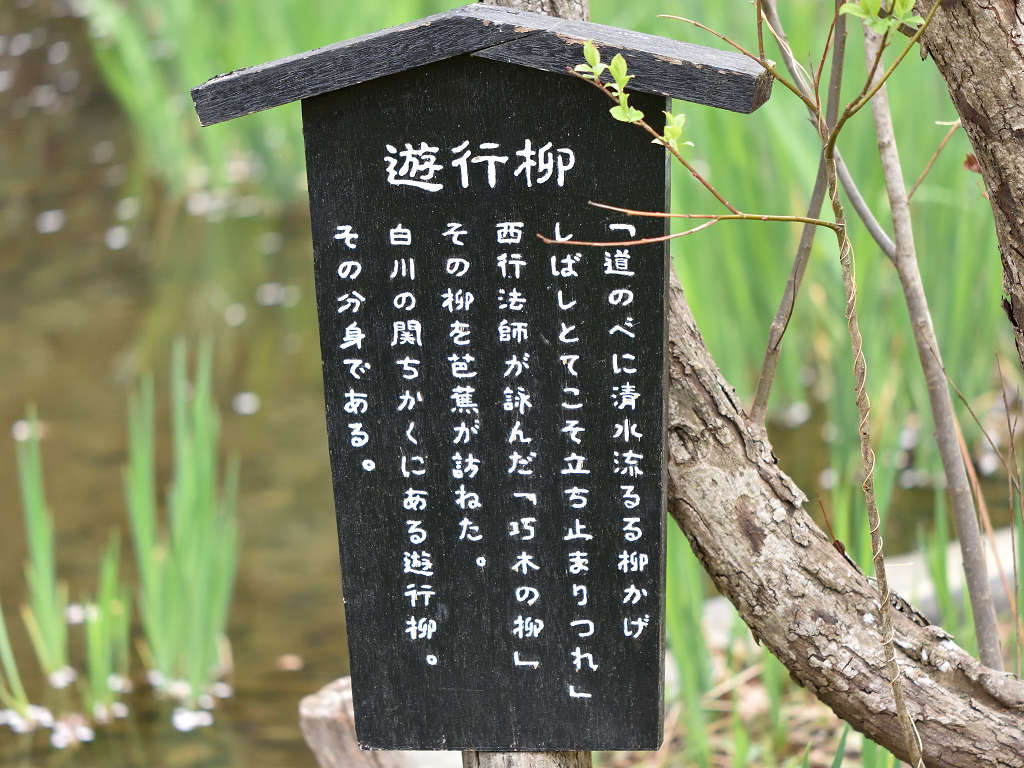 遊行柳
「道のべに清水流るる柳かげ
しばしとてこそ立ち止まりつれ」
西行法師が詠んだ「巧木の柳」
その柳を芭蕉が訪ねた。
白川の関ちかくにある遊行柳。
その分身である。